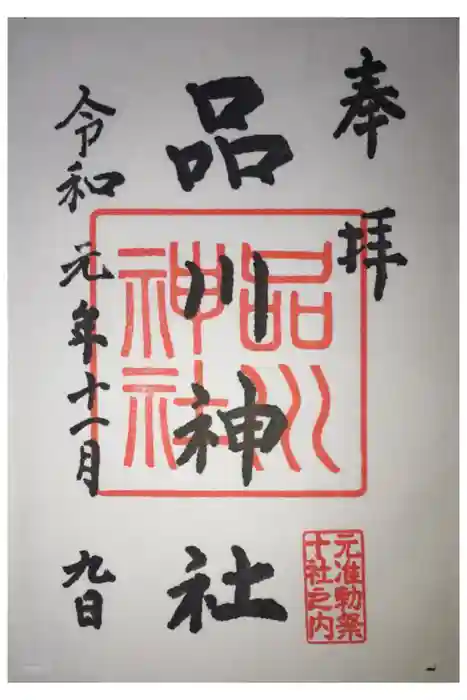 奉拝
品川神社
令和元年十一月九日
品川
神社
元准勅祭
十社之内